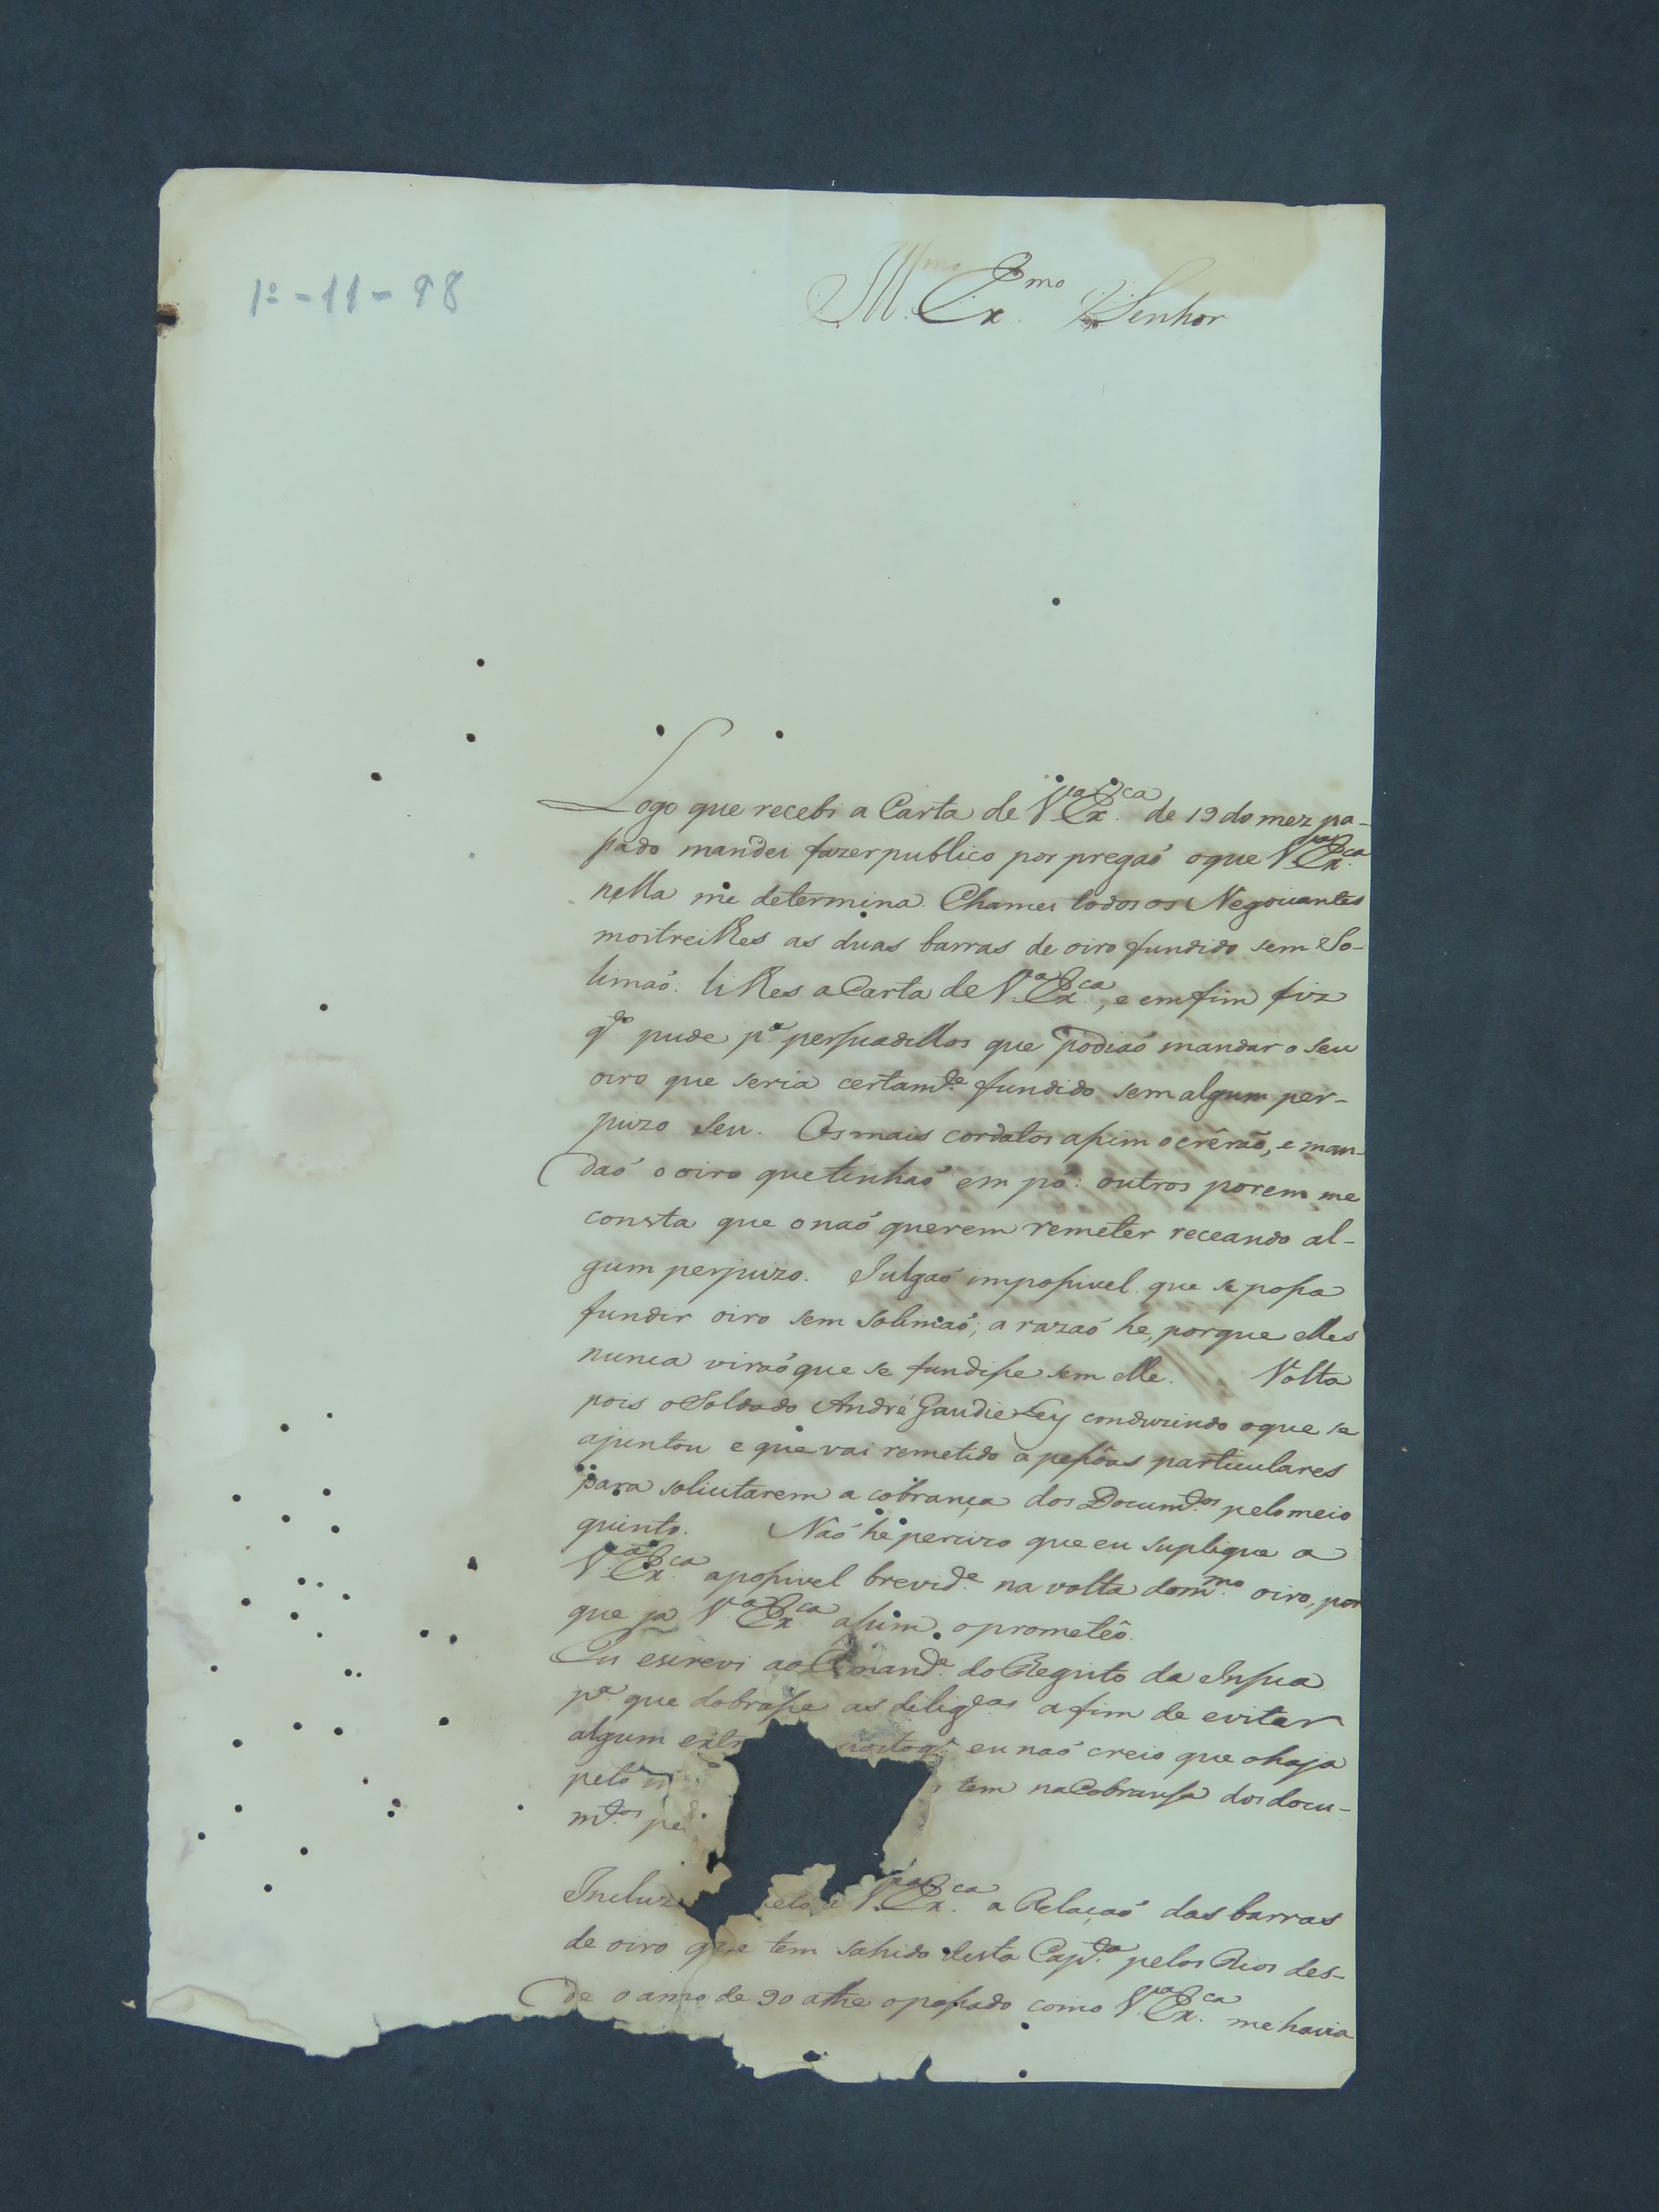 1º-11-98
Ill.mo Ex.mo Senhor
Logo que recebi a Carta de V.a Ex.ca de 19 do mez pa-
ssado mandei fazer publico por pregaó o que V.a Ex.ca
nella me determina. Chamei todos os Negociantes
mostreilhes as duas barras de oiro fundido sem So-
limaó. li lhes a Carta de V.a Ex.ca, e em fim fiz
q.to pude p.a persuadillos que podiaó mandar o seu
oiro que seria certam.te fundido sem algum per-
juizo seu. Os mais cordatos assim o crêraõ, e man-
daó o oiro que tinhaó em pó: outros porem me
consta que o naó querem remeter receando al-
gum perjuizo. Julgaó impossivel que se possa
fundir oiro sem solimaó; a razaó he, porque elles
nunca viraó que se fundisse sem elle. Volta
pois o Soldado André Gaudie Ley conduzindo o que se
ajuntou e que vai remetido a pessôas particulares
para solicitarem a cobrança dos Docum.tos pelo meio
quinto. Naó he percizo que eu suplique a
V.a Ex.ca a possivel brevid.e na volta do m.mo oiro, por
que ja V.a Ex.ca assim o prometêo.
Eu escrevi ao Comand.e do Registo da Insua
p.a que dobrasse as dilig.as a fim de evitar
algum eu naó creio que o haja
pelo tem na Cobransa dos docu-
m.tos
V.a Ex.ca a Relaçaó das barras
de oiro que tem sahido desta Cap.ta pelos Rios des-
de o anno de 90 athe o passado como V.a Ex.ca me havia